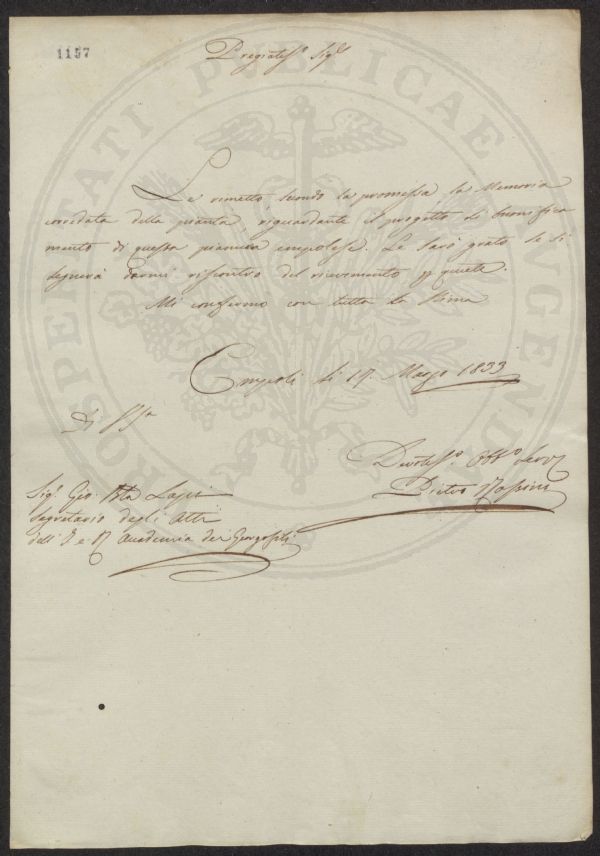 1157
Pregiatess.o Sig.e
Le rimetto, secondo la promessa, la Memoria
corredata della pianta riguardante il progetto di bonifica
mento di questa pianura empolese. Le sarò grato se si
degnerà darmi riscontro del ricevimento p. quiete.
Mi confermo con tutta la stima
Empoli li 17. Marzo 1833
Di
Devotess.o Obb.o Serv.
Pietro
Sig.r Gio. Bta Lapi
Segretario degli Atti
dell' I e R Accademia dei Georgofili
PROSPERITATI PUBLICAE AUGENDAE